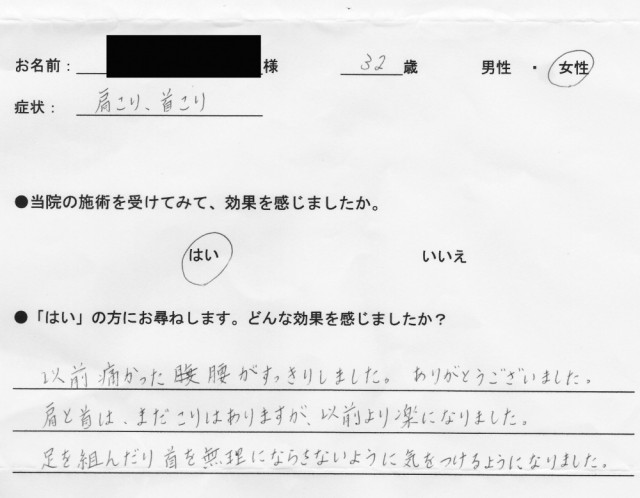 お名前： 様 32 歳 男性 ・ 女性
症状： 肩こり、首こり
●当院の施術を受けてみて、効果を感じましたか。
はい いいえ
●「はい」の方にお尋ねします。どんな効果を感じましたか？
以前痛かった腰がすっきりしました。ありがとうございました。
肩と首は、まだこりはありますが、以前より楽になりました。
足を組んだり首を無理にならさないように気をつけるようになりました。